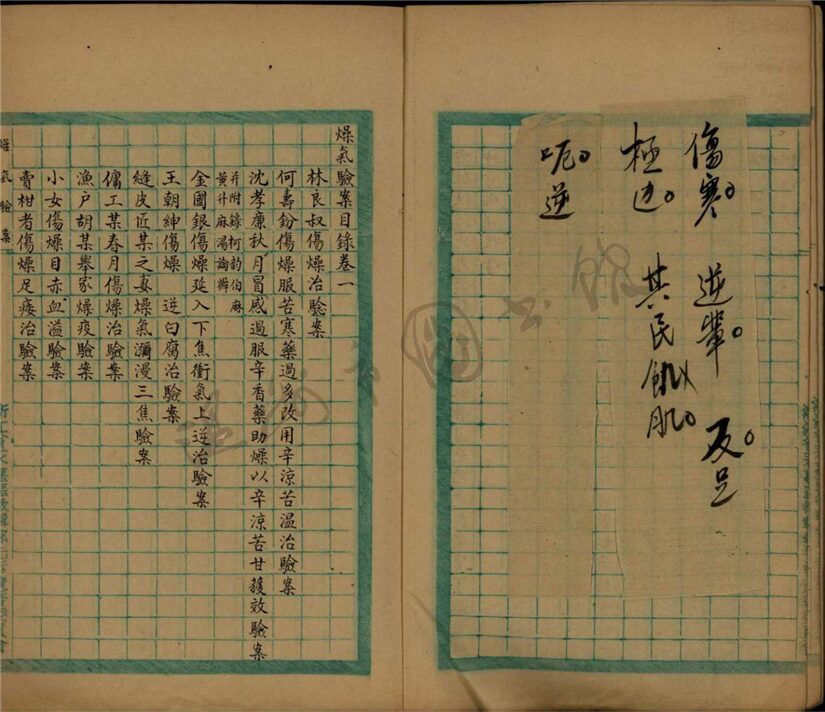 傷寒。 逆輩。
極边。 其民飢 肌。
呃。逆
燥氣驗案目錄卷一
林良叔傷燥治驗案
何壽鈖傷燥服苦寒藥過多改用辛涼苦溫治驗案
沈孝廉秋月冒感過服辛香藥助燥以辛涼苦甘獲效驗案
并附錄柯韵伯麻
黃升麻湯論辨
金國銀傷燥延入下焦衝氣上逆治驗案
王朝紳傷燥 逆白腐治驗案
縫皮匠某之妻燥氣瀰漫三焦驗案
傭工某春月傷燥治驗案
漁户胡某舉家燥疫驗案
小女傷燥目赤血溢驗案
賣柑者傷燥足痿治驗案
燥氣驗案